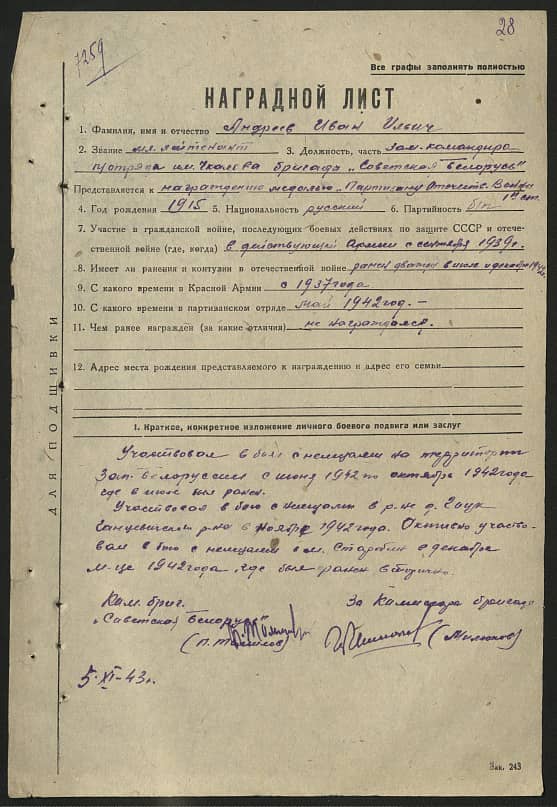 28
7259
Все графы заполнять полностью
НАГРАДНОЙ ЛИСТ
1. Фамилия, имя и отчество Андреев Иван Ильич
2. Звание мл. лейтенант 3. Должность, часть зам. командира
п/отряда им. Чкалова бригада „Советская Белорусь"
Представляется к награждению медалью „Партизану Отечеств. Войны
1й ст.
4. Год рождения 1915 5. Национальность русский 6. Партийность б/п
7. Участие в гражданской войне, последующих боевых действиях по защите СССР и отече-
ственной войне (где, когда) в действующей Армии с сентября 1939г.
8. Имеет ли ранения и контузии в отечественной войне ранен дважды в июле и декабре 1942г.
9. С какого времени в Красной Армии с 1937 года
10. С какого времени в партизанском отряде май 1942 год. —
11. Чем ранее награжден (за какие отличия) не награждался.
12. Адрес места рождения представляемого к награждению и адрес его семьи
ДЛЯ ПОДШИВКИ
I. Краткое, конкретное изложение личного боевого подвига или заслуг
Участвовал в боях с немцами на территории
Зап. Белоруссии с июня 1942 по октябрь 1942 года
где в июле был ранен.
Участвовал в бою с немцами в р-не д.
Ганцевичского р-на в Ноябре 1942 года. Активно участво-
вал в бою с немцами в м. Старобин в декабре
м-це 1942 года, где был ранен вторично.
Ком. бриг. За Комиссара бригады
„Советская Белорусь"
5.XI-43г.
Зак. 243